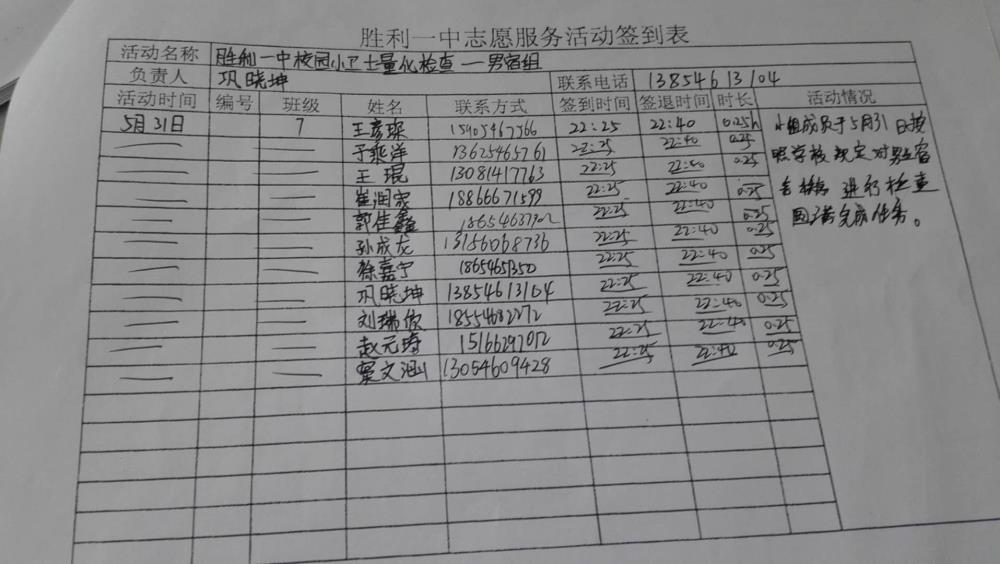 胜利一中志愿服务活动签到表
活动名称 胜利一中校园小卫士量化检查—男宿组
负责人 巩晓坤 联系电话 13854613104
活动时间 编号 班级 姓名 联系方式 签到时间 签退时间 时长 活动情况
5月31日 7 王彦琛 15905467566 22:25 22:40 0.25h
于乘洋 13625465761 22:25 22:40 0.25
王琨 13081417763 22:25 22:40 0.25
崔润家 18866671599 22:25 22:40 0.25
郭佳鑫 22:25 22:40 0.25
孙成龙 13156068736 22:25 22:40 0.25
徐嘉宁 1865465350 22:25 22:40 0.25
巩晓坤 13854613104 22:25 22:40 0.25
刘瑞欣 18554682272 22:25 22:40 0.25
赵元涛 15166297012 22:25 22:40 0.25
窦文涵 13054609428 22:25 22:40 0.25
小组成员于5月31日按
照学校规定对男生宿
舍楼 进行检查
圆满完成任务。